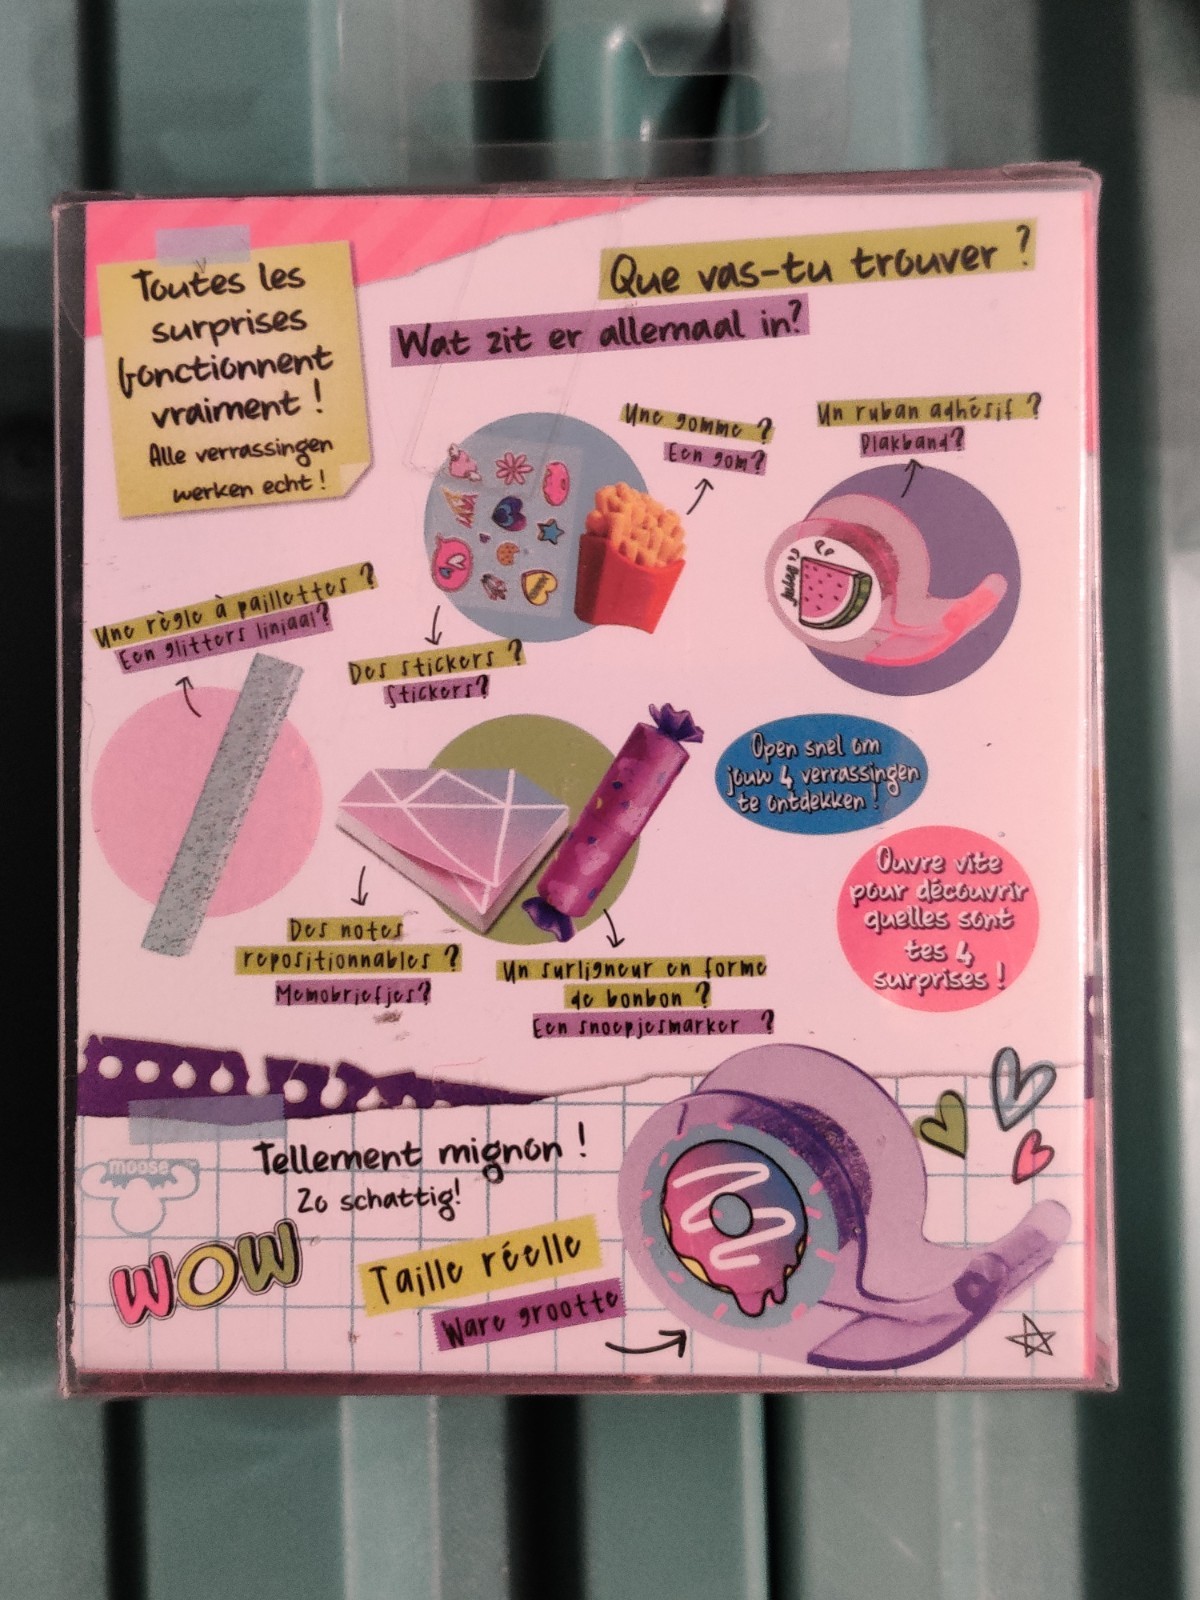 Toutes les
surprises
fonctionnent
vraiment !
Alle verrassingen
werken echt !
Que vas-tu trouver ?
Wat zit er allemaal in?
Une gomme ?
Een gom?
Un ruban adhésif ?
Plakband?
Une règle à paillettes ?
Een glitters liniaal?
Des stickers ?
Stickers?
Open snel om
jouw 4 verrassingen
te ontdekken !
Ouvre vite
pour découvrir
quelles sont
tes 4
surprises !
Des notes
repositionnables ?
Memobriefjes?
Un surligneur en forme
de bonbon ?
Een snoepjesmarker ?
moose
Tellement mignon !
Zo schattig!
WOW
Taille réelle
Ware grootte